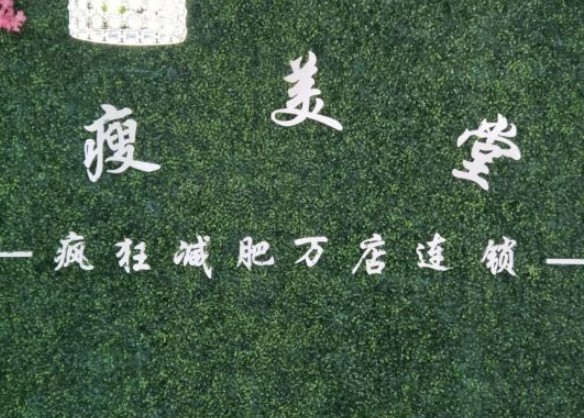 瘦美堂
疯狂减肥万店连锁